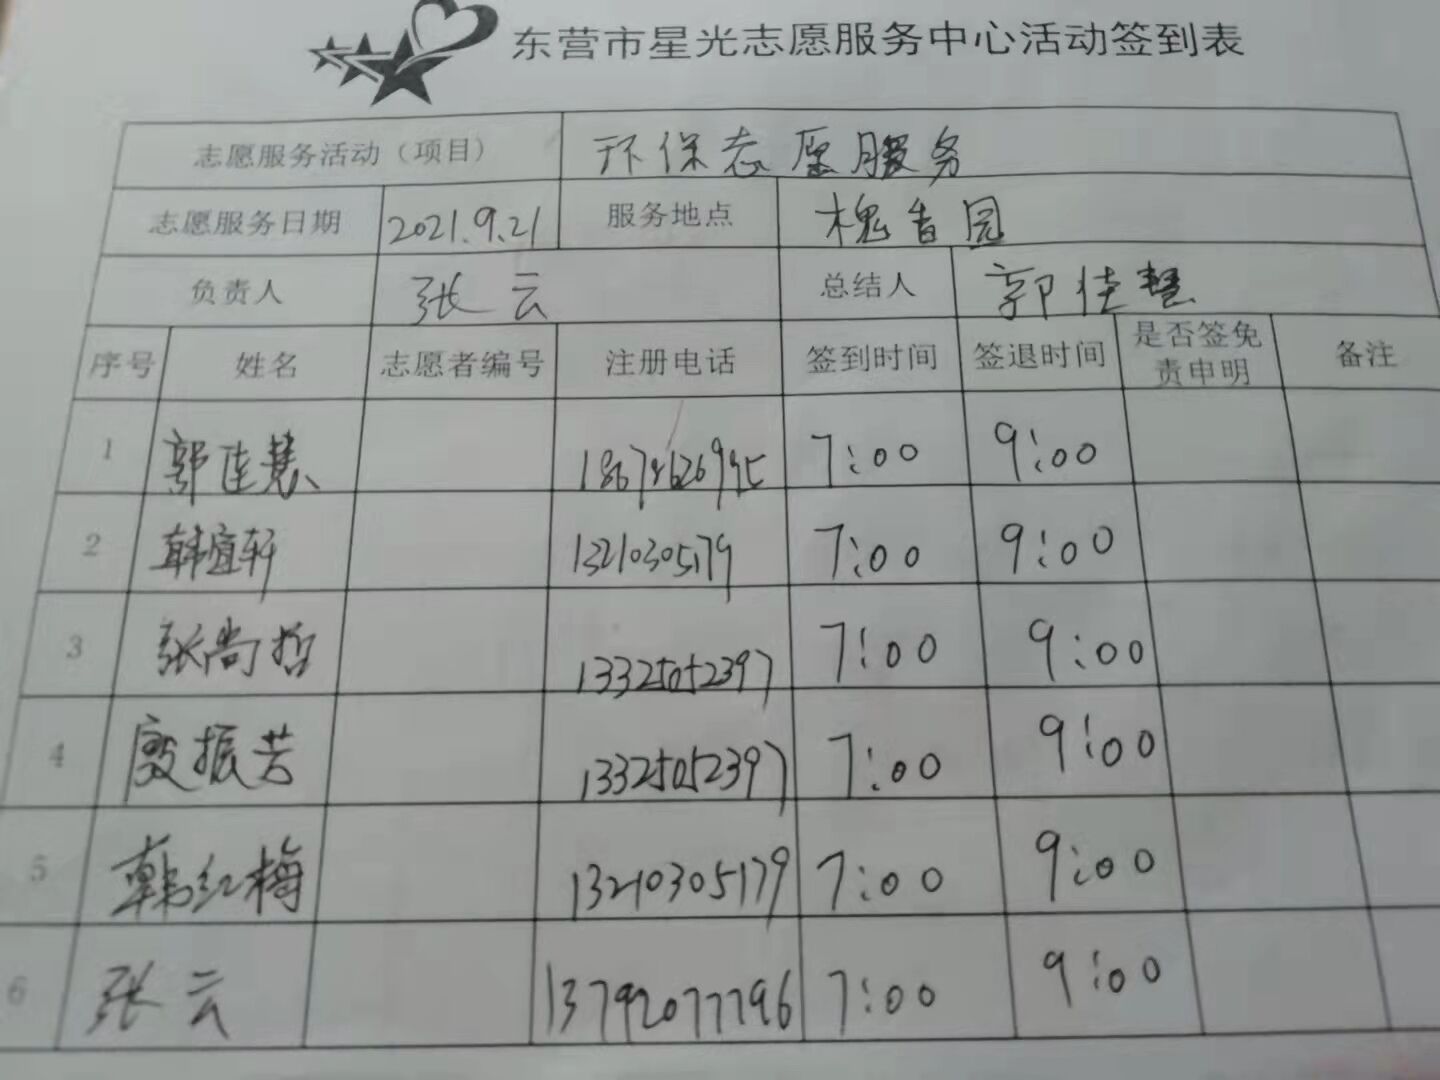 东营市星光志愿服务中心活动签到表
志愿服务活动（项目） 环保志愿服务
志愿服务日期 2021.9.21 服务地点 槐香园
负责人 张云 总结人 郭佳慧
序号 姓名 志愿者编号 注册电话 签到时间 签退时间 是否签免责申明 备注
1 郭佳慧 7:00 9:00
2 韩宜轩 13210305179 7:00 9:00
3 张尚哲 13325052397 7:00 9:00
4 殷振芳 13325052397 7:00 9:00
5 韩红梅 13210305179 7:00 9:00
6 张云 13792077796 7:00 9:00